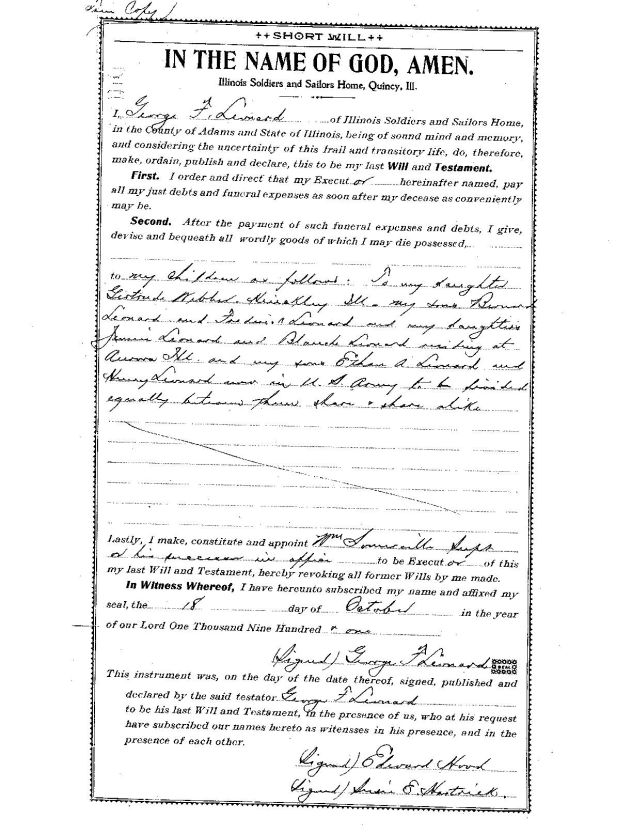 Copy)
++SHORT WILL++
IN THE NAME OF GOD, AMEN.
Illinois Soldiers and Sailors Home, Quincy, Ill.
I, George F. Leonard of Illinois Soldiers and Sailors Home,
in the County of Adams and State of Illinois, being of sound mind and memory,
and considering the uncertainty of this frail and transitory life, do, therefore,
make, ordain, publish and declare, this to be my last Will and Testament.
First. I order and direct that my Execut or hereinafter named, pay
all my just debts and funeral expenses as soon after my decease as conveniently
may be.
Second. After the payment of such funeral expenses and debts, I give,
devise and bequeath all wordly goods of which I may die possessed,
to my children as follows: To my daughter
Gertrude Hinckley Ill. my sons
Leonard and Leonard and my daughters
Leonard and Blanch Leonard residing at
Aurora Ill. and my sons Ethan A Leonard and
Henry Leonard now in U S Army to be divided
equally between them share & share alike
Lastly, I make, constitute and appoint Wm Somerville Supt
or his successor in office to be Execut or of this
my last Will and Testament, hereby revoking all former Wills by me made.
In Witness Whereof, I have hereunto subscribed my name and affixed my
seal, the 18 day of October in the year
of our Lord One Thousand Nine Hundred & one
(Signed) George F Leonard
This instrument was, on the day of the date thereof, signed, published and
declared by the said testator George F Leonard
to be his last Will and Testament, in the presence of us, who at his request
have subscribed our names hereto as witensses in his presence, and in the
presence of each other.
(Signed) Edward Hood
(Signed) Susie E.